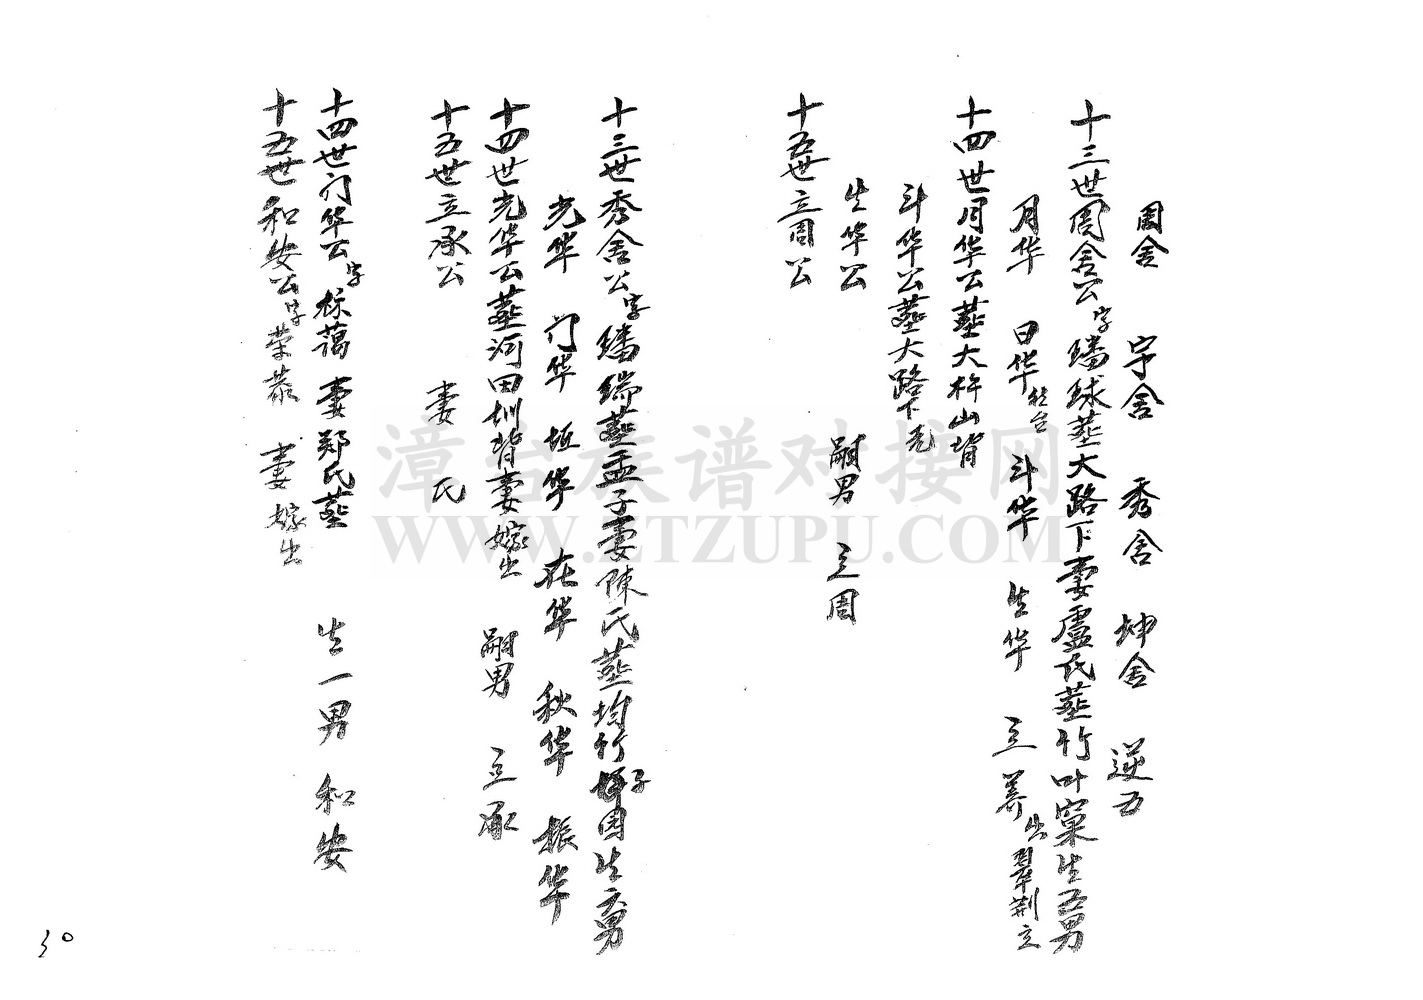 周舍 宇舍 秀舍 坤舍 逆五
十三世周舍公字璠球葬大路下妻盧氏葬竹叶窠生五男
月华 日华往台 斗华 生华 立养出翠荆立
十四世月华公葬大杵山背
斗华公葬大路下
生华公 嗣男 立周
十五世立周公
十三世秀舍公字璠瑞葬孟子妻陳氏葬均竹子因生六男
光华 门华 垣华 在华 秋华 振华
十四世光华公葬河田圳背妻嫁出 嗣男 立承
十五世立承公 妻 氏
十四世门华公字标蔼 妻郑氏葬 生一男 和安
十五世和安公字荣恭 妻嫁出
30
漳台族谱对接网
WWW.ZTZUPU.COM